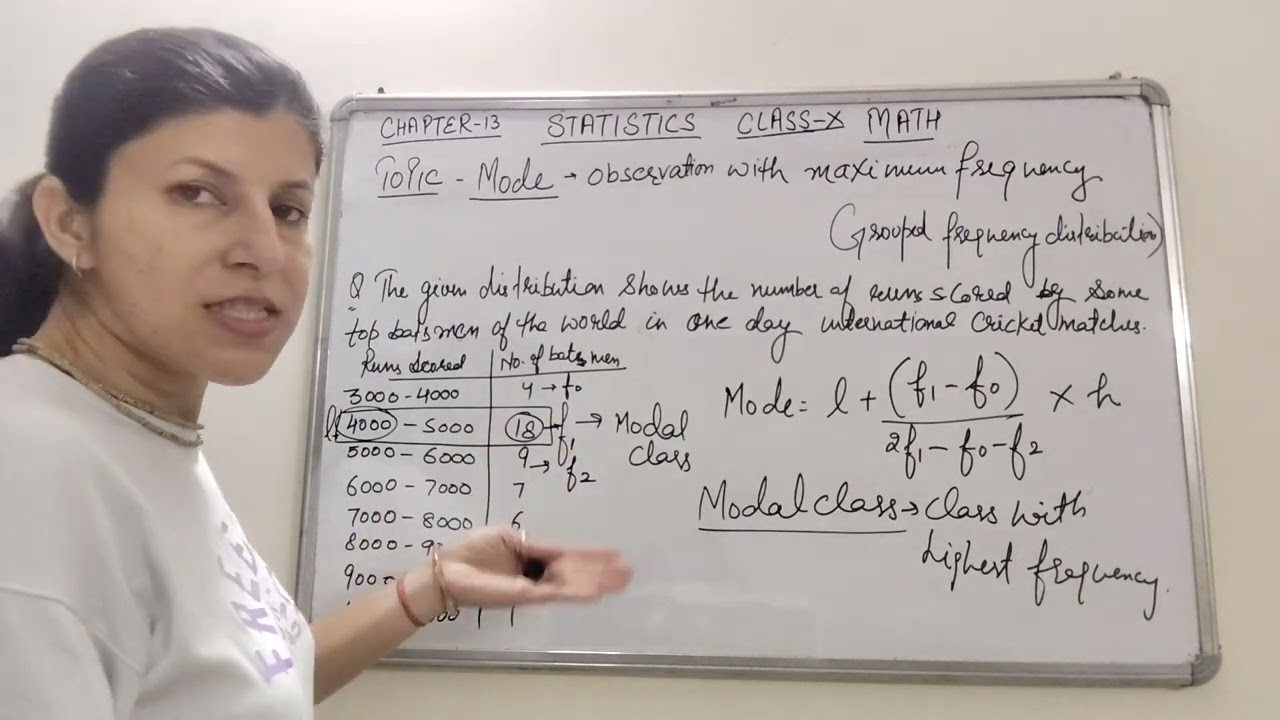 CHAPTER-13 STATISTICS CLASS-X MATH
TOPIC - Mode → observation with maximum frequency
(Grouped frequency distribution)
Q The given distribution shows the number of runs scored by some
top batsmen of the world in one day international cricket matches.
Runs Scored No. of batsmen
3000-4000 4 → f0
l 4000 - 5000 18 → f1 → Modal class
5000 - 6000 9 → f2
6000 - 7000 7
7000 - 8000 6
8000 - 9
900
1
Mode = l + (f1 - f0) / 2f1 - f0 - f2 × h
Modal class → class with
highest frequency.
FREE